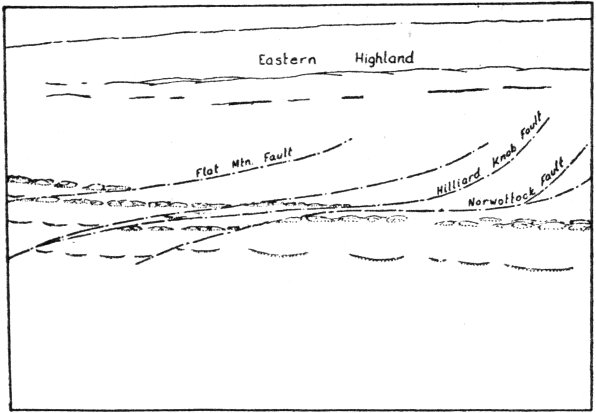 Eastern Highland
Flat Mtn. Fault
Hilliard Knob Fault
Norwottock Fault